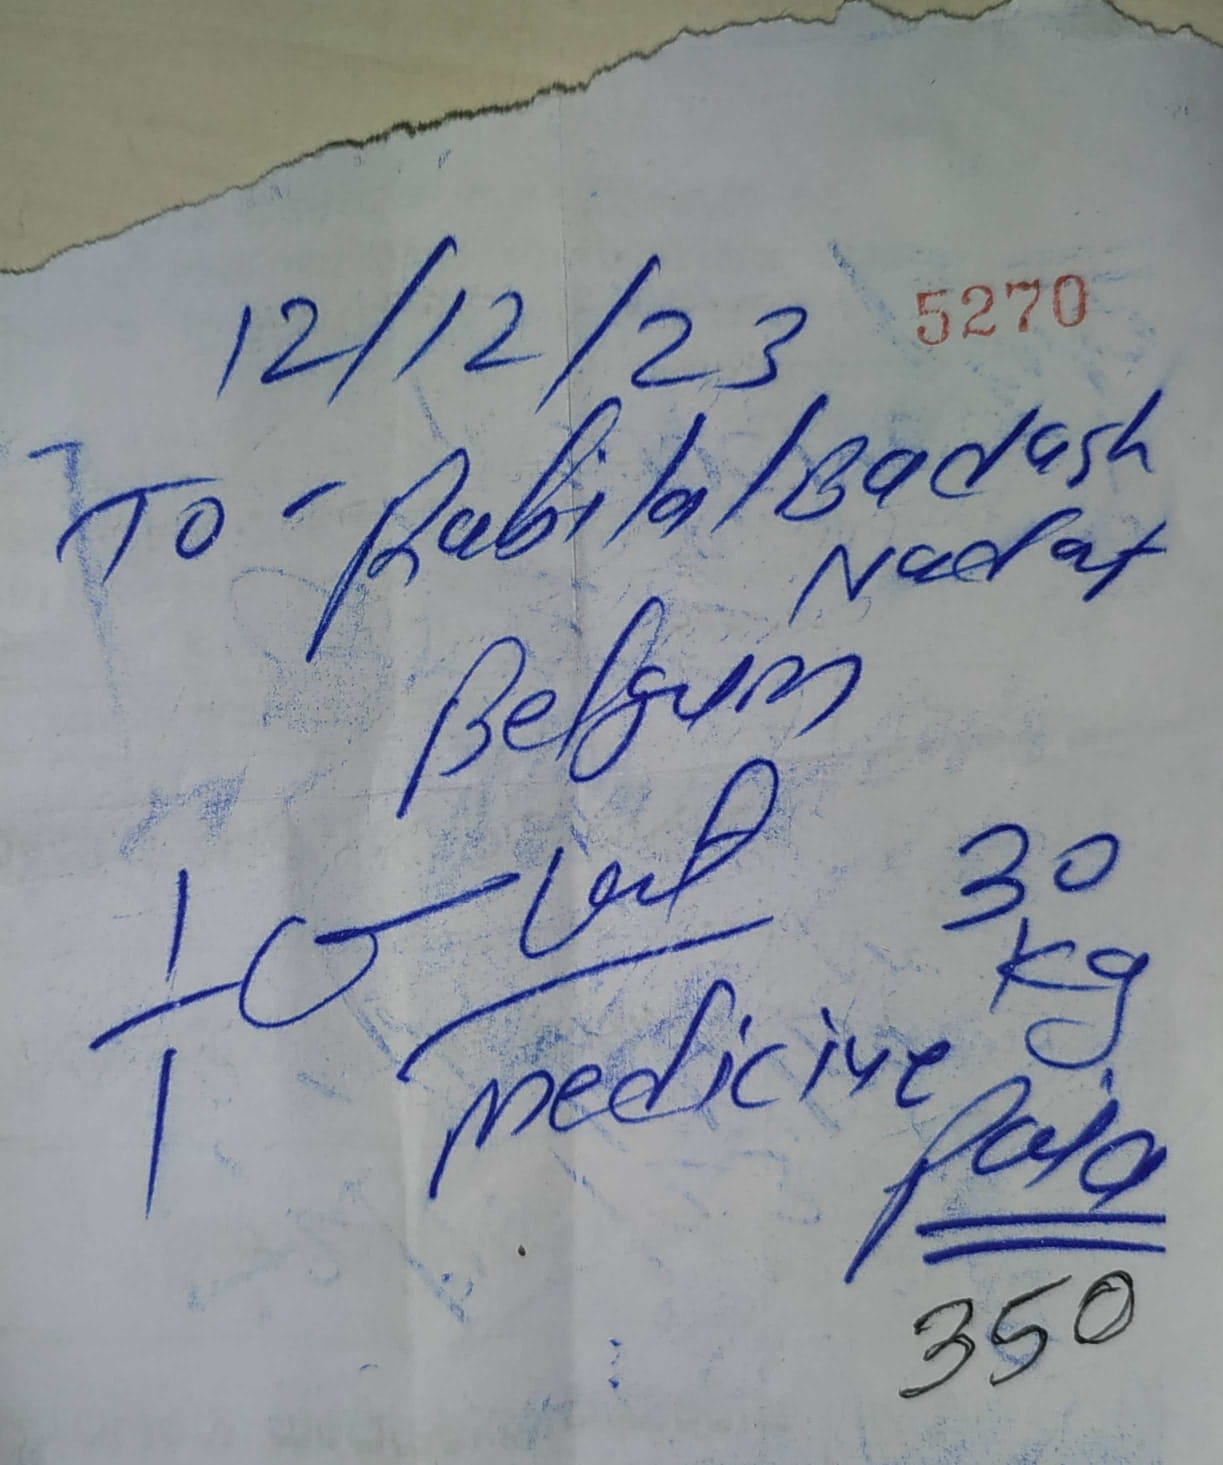 12/12/23 5270
To - Rabita/Badash
Nadaf
Belgum
30
Kg
medicine
Paid
350